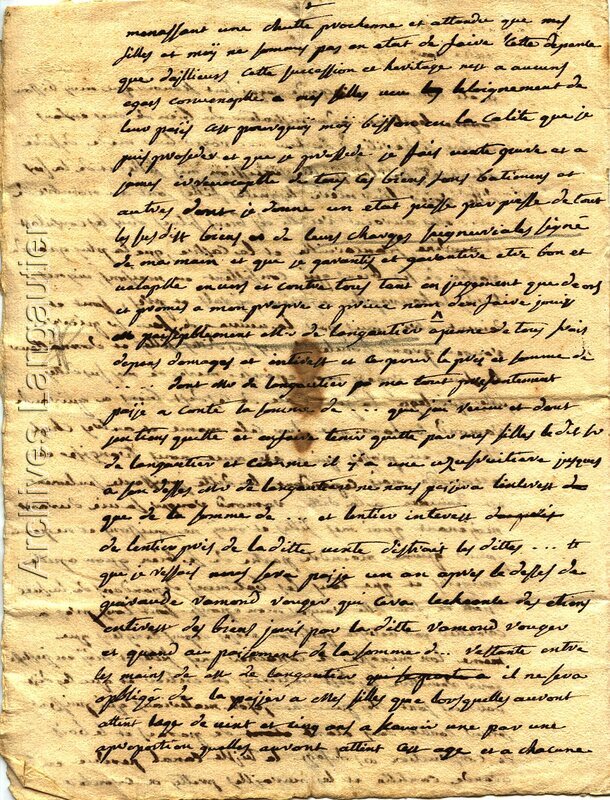 menassant une cheutte prochenne et attendu que mes
filles et moÿ ne sommes pas en etat de faire cette depance
que daillieurs cette succession et heritage nest a aucuns
egars convenaple a mes filles veu leloignement de
leur païs cest pourquoÿ moÿ en la calité que je
puis proseder et que je prosede je fais vente pure et a
james irrevocaple de tous les biens fons batiment et
autres dont je donne un etat piesse par piesse de tout
les susdist biens et de leurs charges seigneuriales signé
de ma main et que je garantis et garantire etre bon et
valaplle envers et contre tous tant en jugement que deors
et promes a mon propre et privée nom den faire jouir
paisiplement Mr de langautier a peinne de tous frais
depens domages et interest et ce pour le pris et somme de
.... dont Mr de langautier ma tout presentement
paÿé a conté la somme de ... que jai receue et dont
quitte et en faire tenir quitte par mes filles le dit Sr
de langautier et comme il ÿ a une usufruitiere jusques
a son desses Mr de langautier ne nous paÿera linterest
que de la somme de ... et lentier interest
de lentier pris de la ditte vente distrait les dittes ... #
que je ressois nous sera paÿé un an apres le desses de
vamond rouger qui sera
interest des biens jouis par la ditte vamond rouger
et quand au paiement de la somme de .. restante entre
les mains de Mr de langautier il ne sera
opligé de la paÿer a Mes filles que lorsquelles auront
attint lage de vint et cinq ans a scavoir une par une
a proportion quelles auront attint cest age et a chacune
Archives Langautier